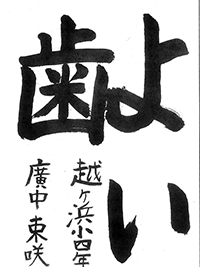 よい
歯
越ヶ浜小四年
廣中束咲